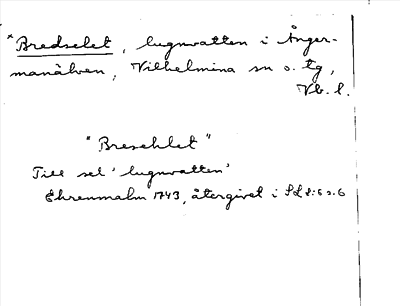 *Bredselet, lugnvatten i Ånger-
manälven, Vilhelmina sn o. tg,
Vb. l.
"Bresehlet"
Till sel 'lugnvatten'
Ehrenmalm 1743, återgivet i SLL:6 s. 6